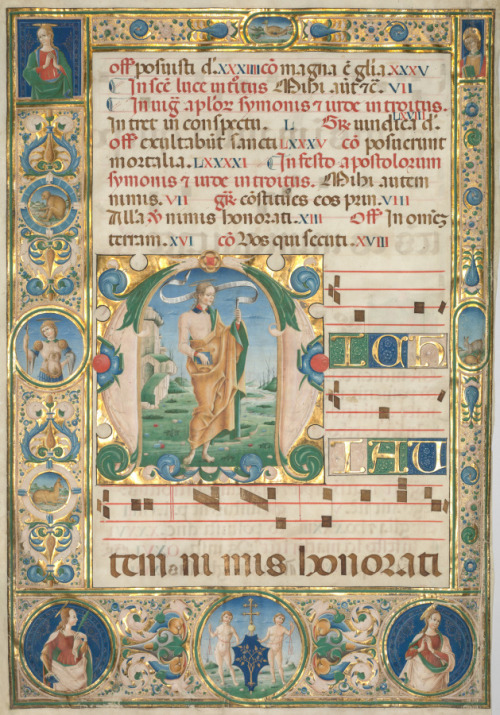 off posuisti d. XXXIIII cō magna ē glīa. XXXV
In scē luce introitus Mihi aut̄ &c. VII
In uig̃ aplor̄ symonis & iude in troitus.
In tret in conspectu. L Gr̄. uindica d. LXVIII
off exultabūt sancti LXXXV cō posuerunt
mortalia. LXXXXI In festo apostolorum
symonis & iude in troitus. Mihi autem
nimis. VII gr̄. cōstitues eos prin. VIII
Alla ℣ nimis honorati. XIII Off In omēz
terram. XVI cō Vos qui secuti. XVIII
M
ICH
IAU
tem ni mis honorati